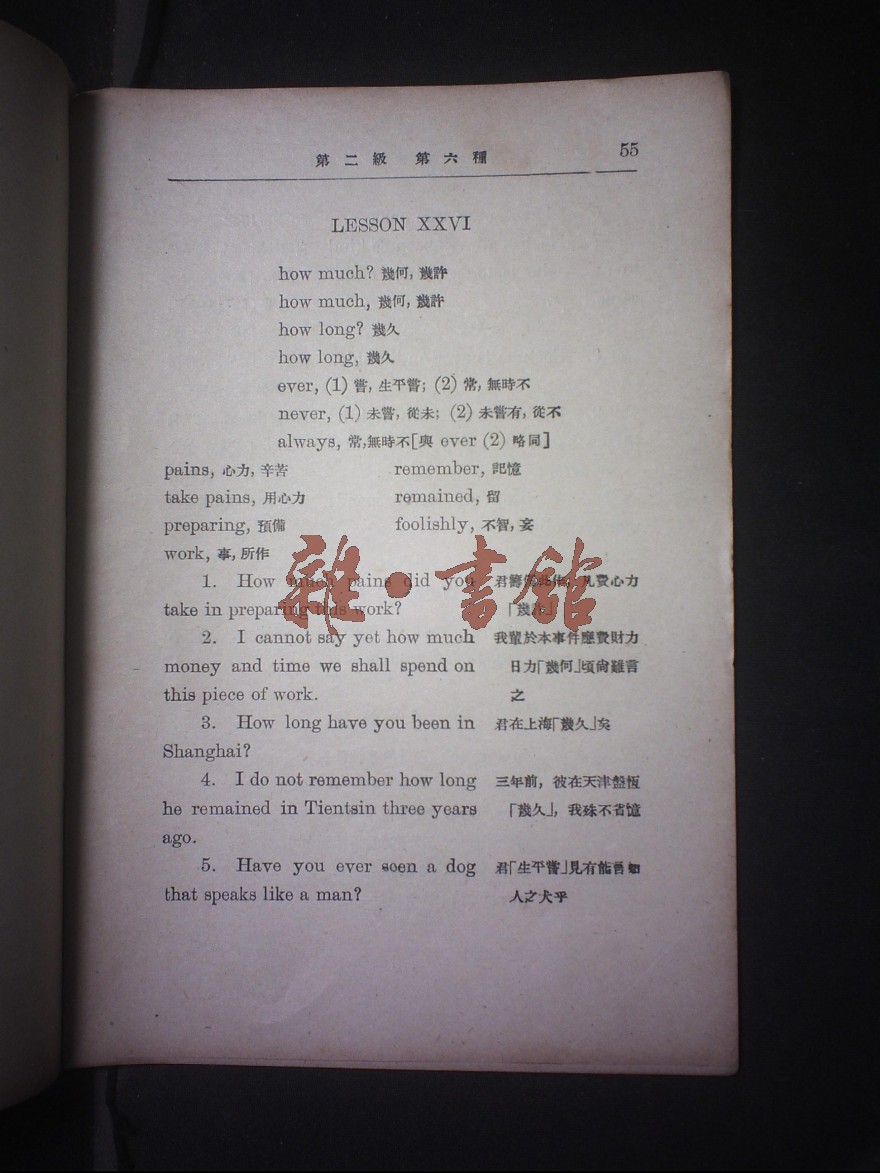 第二級 第六種 55
LESSON XXVI
how much? 幾何, 幾許
how much, 幾何, 幾許
how long? 幾久
how long, 幾久
ever, (1) 嘗, 生平嘗; (2) 常, 無時不
never, (1) 未嘗, 從未; (2) 未嘗有, 從不
always, 常,無時不[與 ever (2) 略同]
pains, 心力, 辛苦 remember, 記憶
take pains, 用心力 remained, 留
preparing, 預備 foolishly, 不智, 妄
work, 事, 所作
1. How much pains did you 君籌備此作, 凡費心力
take in preparing this work? 「幾許」
2. I cannot say yet how much 我輩於本事件應費財力
money and time we shall spend on 日力「幾何」頃尙難言
this piece of work. 之
3. How long have you been in 君在上海「幾久」矣
Shanghai?
4. I do not remember how long 三年前, 彼在天津盤恆
he remained in Tientsin three years 「幾久」, 我殊不省憶
ago.
5. Have you ever seen a dog 君「生平嘗」見有能言如
that speaks like a man? 人之犬乎
雜·書館